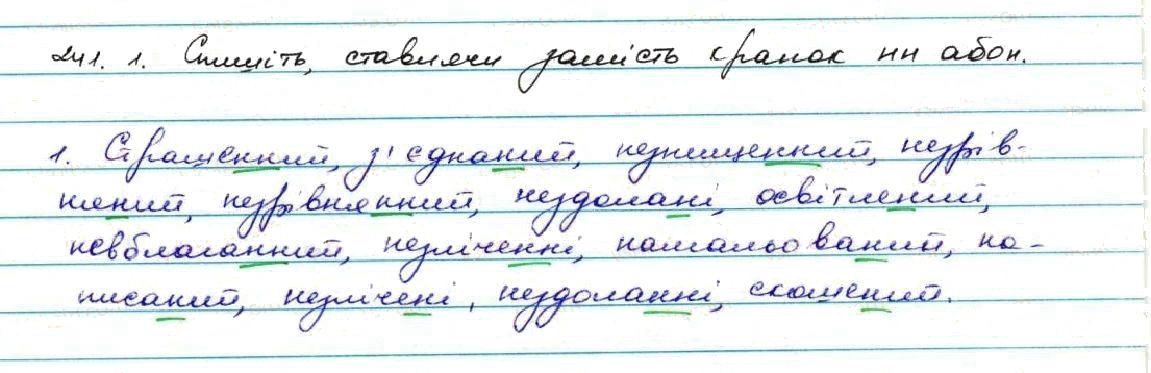 241. 1. Спишіть, ставлячи замість крапок нн або н.
1. Страшенний, з'єднаний, незнищенний, незрів-
няний, незрівнянний, нездолані, освітлений,
невблаганний, незліченні, намальований, на-
писаний, незлічені, нездоланні, скошений.